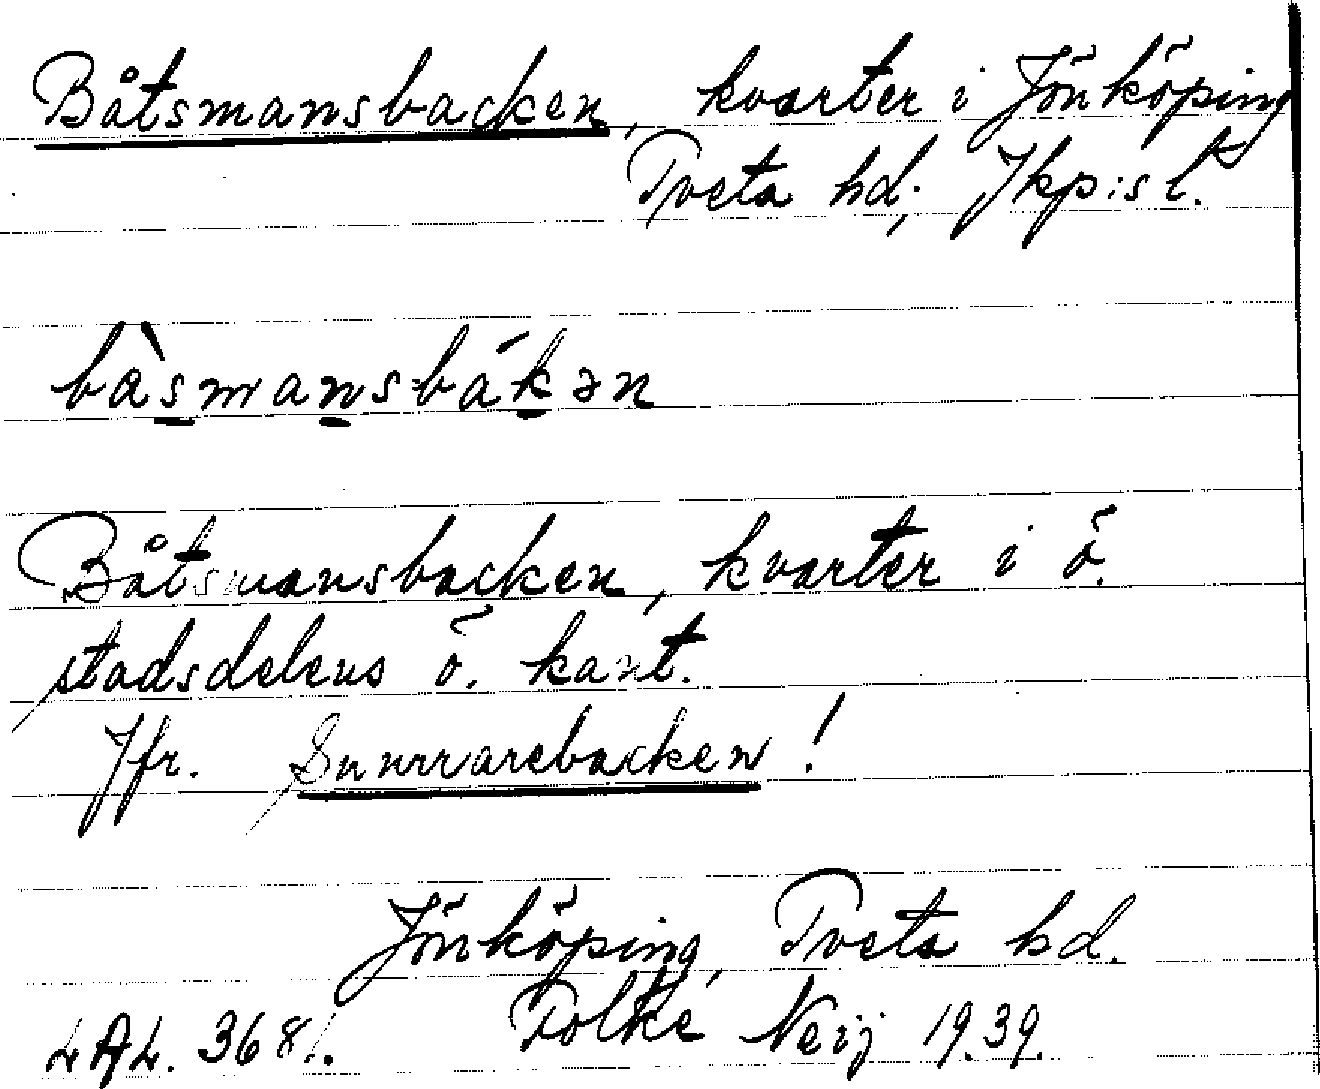 Båtsmansbacken, kvarter i Jönköping
Tveta hd; Jkp:s l.
båtsmansbacken, kvarter i ö.
stadsdelens ö. kant.
Jfr. Sunnarebacken!
Jönköping, Tveta hd.
LAL. 3681. Folke Neij 1939.